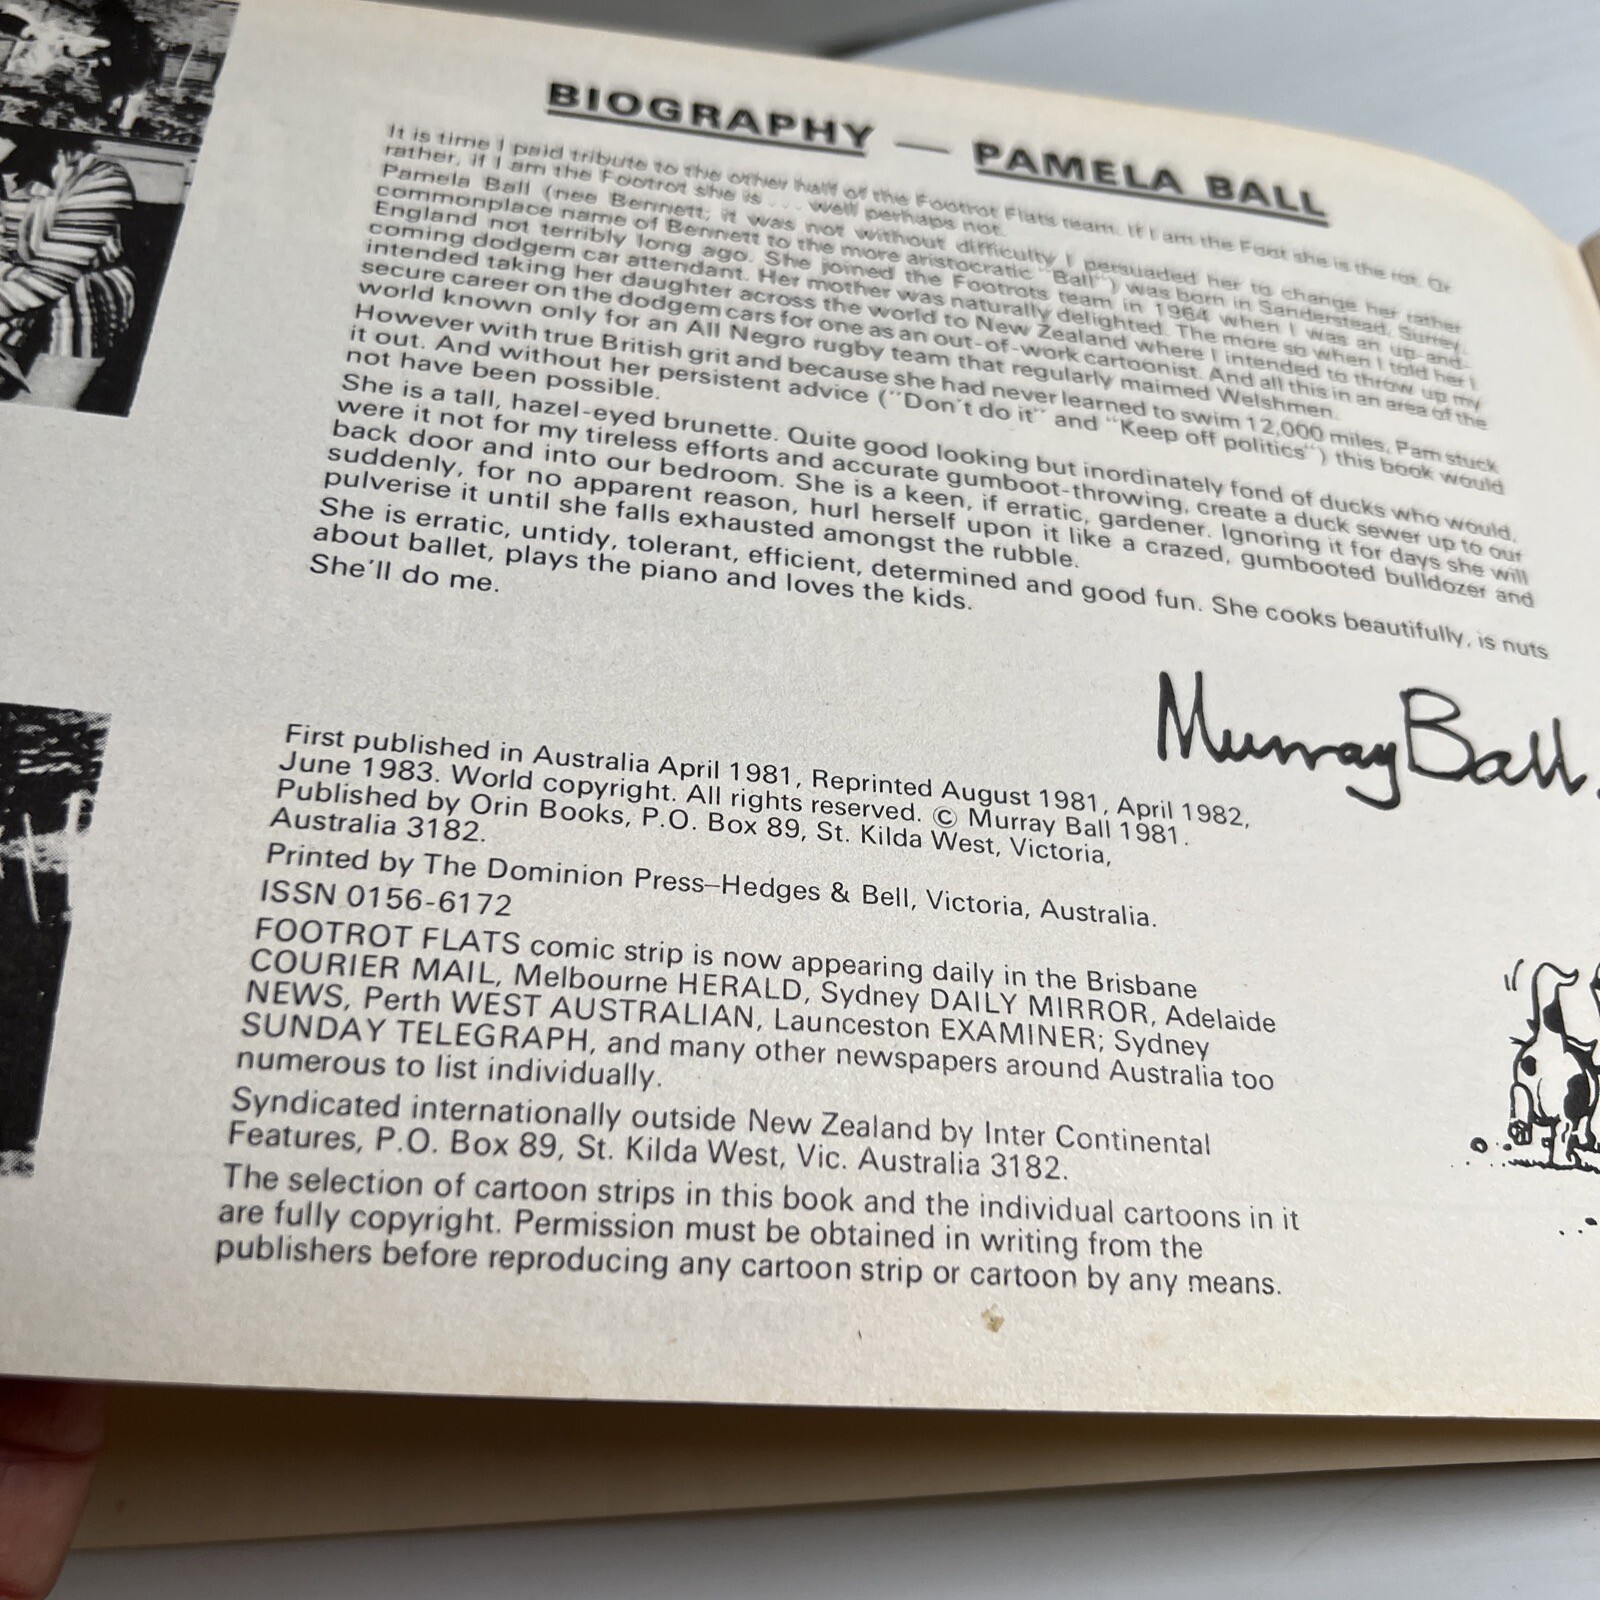 BIOGRAPHY — PAMELA BALL
It is time I paid tribute to the other half of the Footrot Flats team. If I am the Foot she is the rot. Or
rather, if I am the Footrot she is . . . well perhaps not.
Pamela Ball (nee Bennett; it was not without difficulty I persuaded her to change her rather
commonplace name of Bennett to the more aristocratic "Ball") was born in Sanderstead, Surrey,
England not terribly long ago. She joined the Footrots team in 1964 when I was an up-and-
coming dodgem car attendant. Her mother was naturally delighted. The more so when I told her I
intended taking her daughter across the world to New Zealand where I intended to throw up my
secure career on the dodgem cars for one as an out-of-work cartoonist. And all this in an area of the
world known only for an All Negro rugby team that regularly maimed Welshmen.
However with true British grit and because she had never learned to swim 12,000 miles, Pam stuck
it out. And without her persistent advice ("Don't do it" and "Keep off politics") this book would
not have been possible.
She is a tall, hazel-eyed brunette. Quite good looking but inordinately fond of ducks who would,
were it not for my tireless efforts and accurate gumboot-throwing, create a duck sewer up to our
back door and into our bedroom. She is a keen, if erratic, gardener. Ignoring it for days she will
suddenly, for no apparent reason, hurl herself upon it like a crazed, gumbooted bulldozer and
pulverise it until she falls exhausted amongst the rubble.
She is erratic, untidy, tolerant, efficient, determined and good fun. She cooks beautifully, is nuts
about ballet, plays the piano and loves the kids.
She'll do me.
Murray Ball.
First published in Australia April 1981, Reprinted August 1981, April 1982,
June 1983. World copyright. All rights reserved. © Murray Ball 1981.
Published by Orin Books, P.O. Box 89, St. Kilda West, Victoria,
Australia 3182.
Printed by The Dominion Press–Hedges & Bell, Victoria, Australia.
ISSN 0156-6172
FOOTROT FLATS comic strip is now appearing daily in the Brisbane
COURIER MAIL, Melbourne HERALD, Sydney DAILY MIRROR, Adelaide
NEWS, Perth WEST AUSTRALIAN, Launceston EXAMINER; Sydney
SUNDAY TELEGRAPH, and many other newspapers around Australia too
numerous to list individually.
Syndicated internationally outside New Zealand by Inter Continental
Features, P.O. Box 89, St. Kilda West, Vic. Australia 3182.
The selection of cartoon strips in this book and the individual cartoons in it
are fully copyright. Permission must be obtained in writing from the
publishers before reproducing any cartoon strip or cartoon by any means.